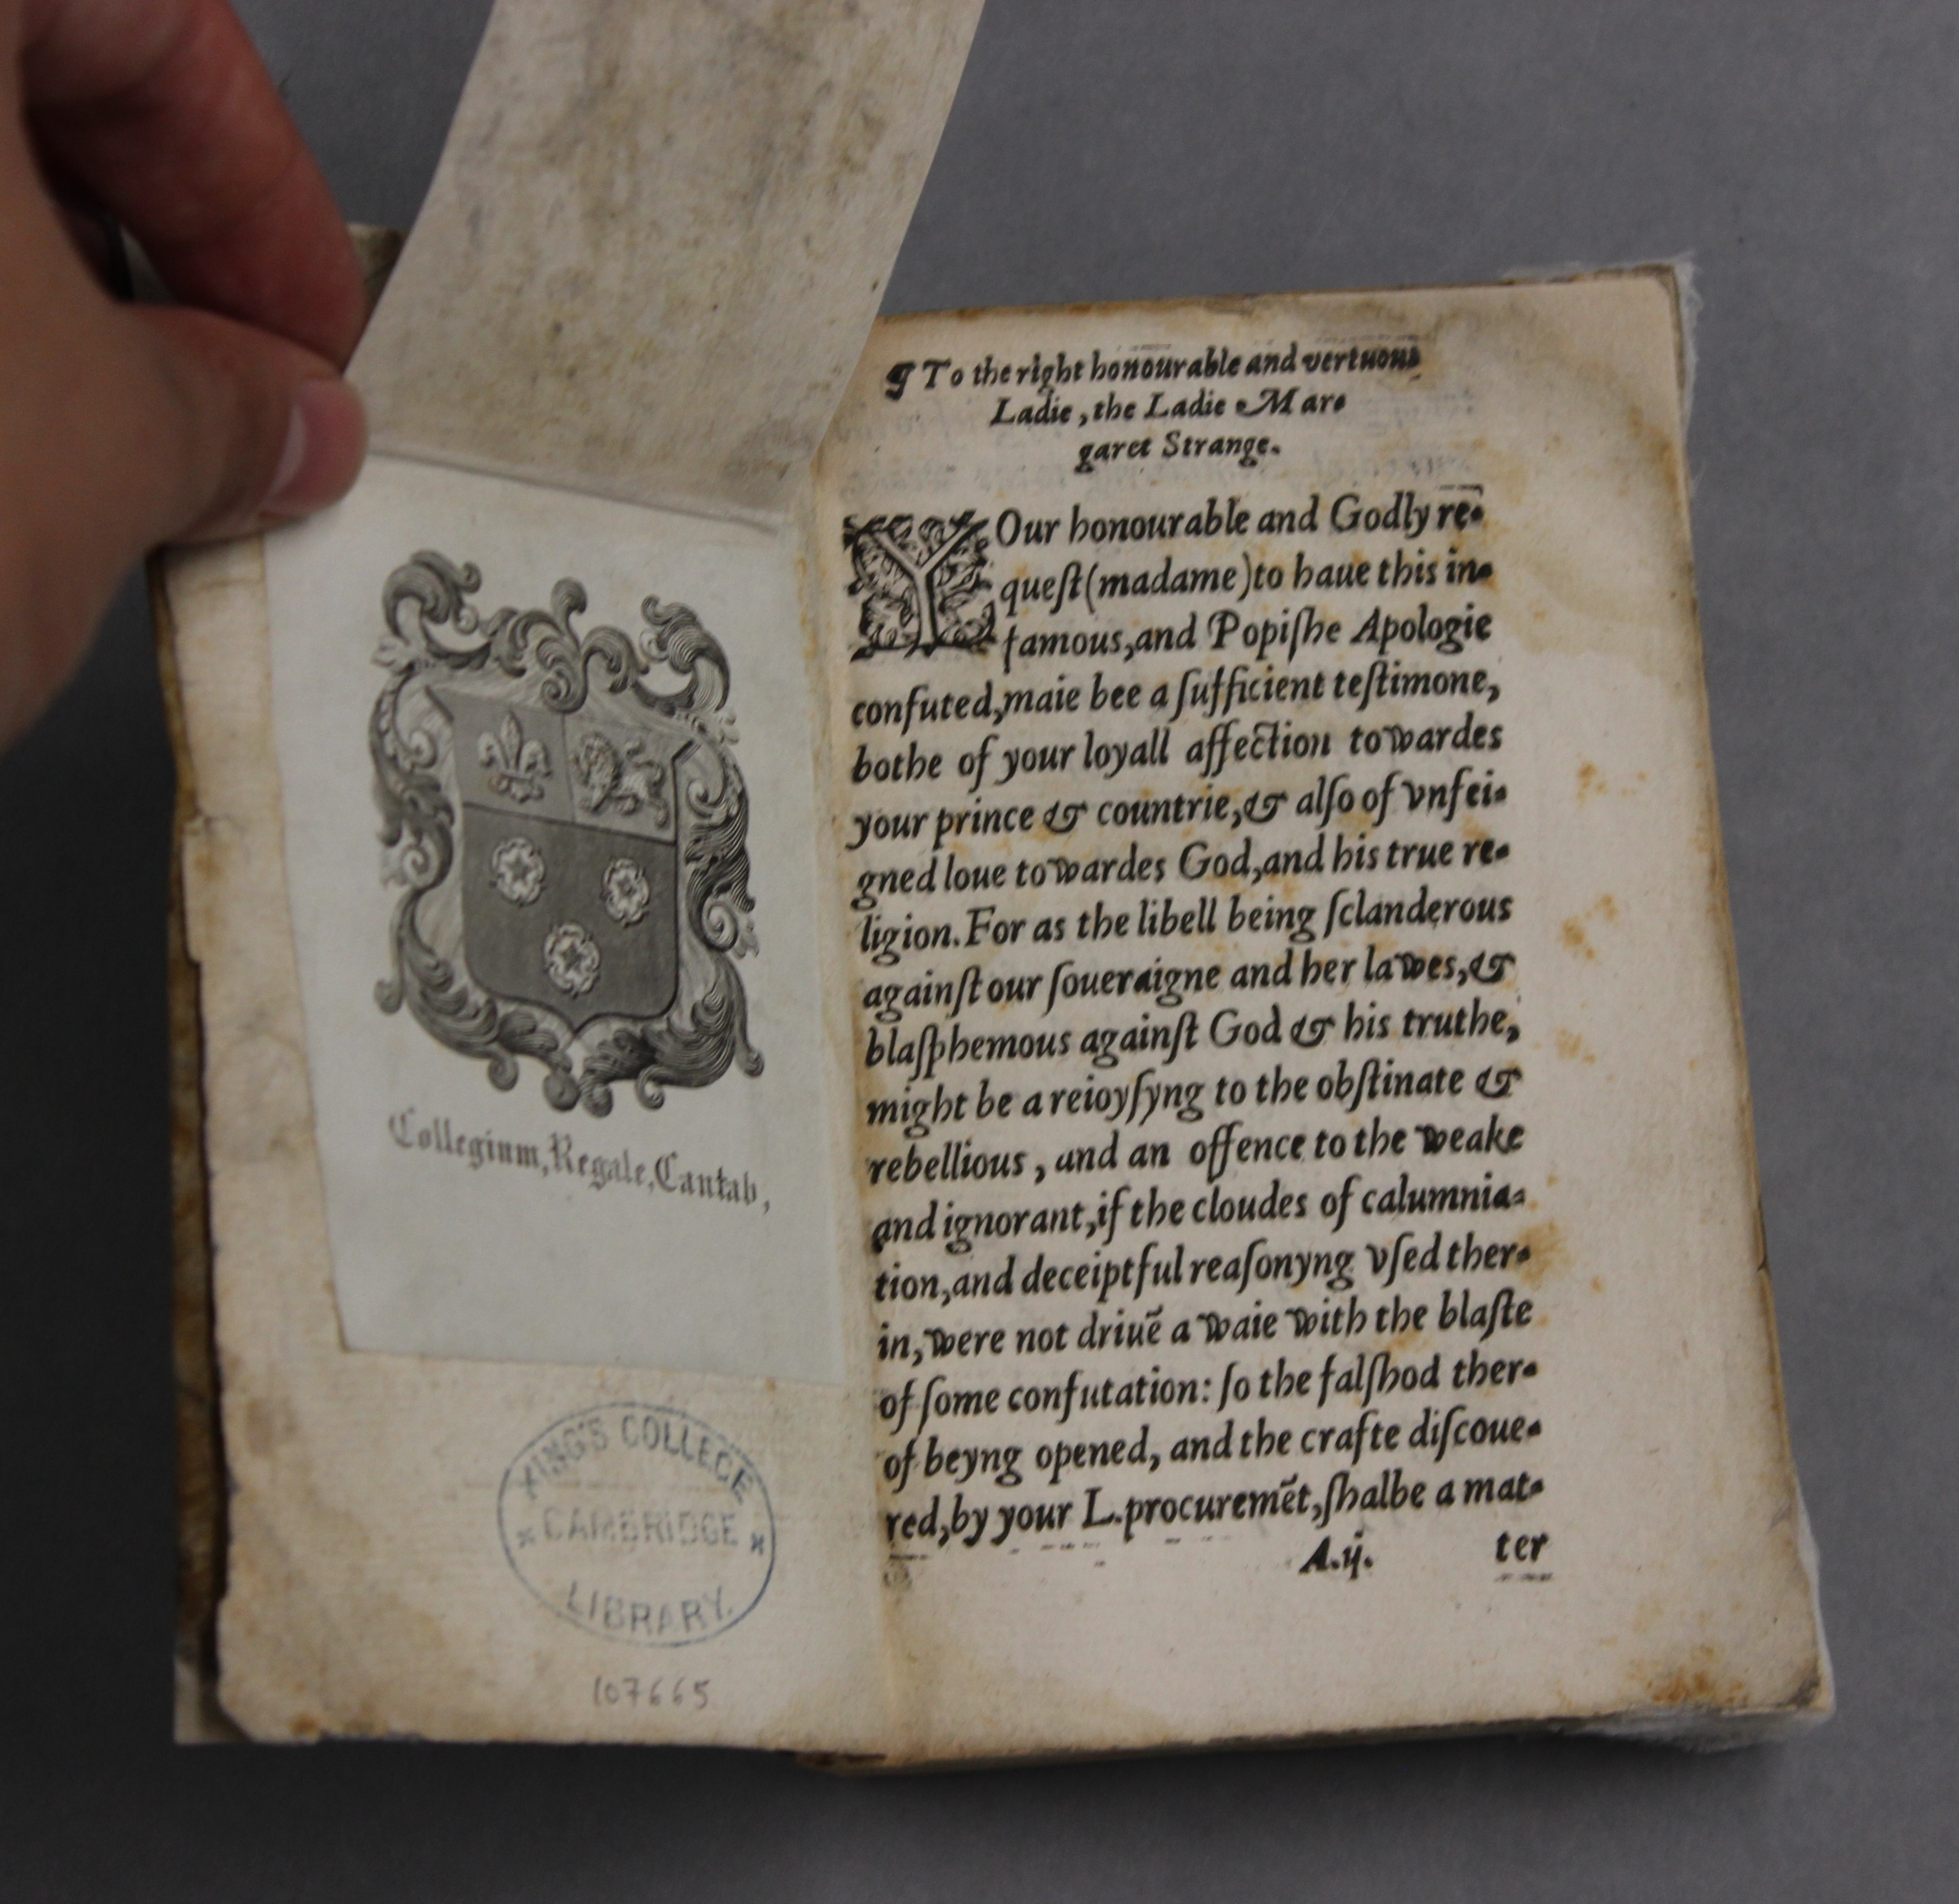 Collegium, Regale, Cantab,
KING'S COLLEGE
* CAMBRIDGE *
LIBRARY.
107665
¶ To the right honourable and vertuous
Ladie, the Ladie Mar-
garet Strange.
YOur honourable and Godly re-
queſt (madame) to haue this in-
famous, and Popiſhe Apologie
confuted, maie bee a ſufficient teſtimone,
bothe of your loyall affection towardes
your prince & countrie, & alſo of vnfei-
gned loue towardes God, and his true re-
ligion. For as the libell being ſclanderous
againſt our ſoueraigne and her lawes, &
blaſphemous againſt God & his truthe,
might be a reioyſyng to the obſtinate &
rebellious, and an offence to the weake
and ignorant, if the cloudes of calumnia-
tion, and deceiptful reaſonyng vſed ther-
in, were not driuē a waie with the blaſte
of ſome confutation: ſo the falſhod ther-
of beyng opened, and the crafte diſcoue-
red, by your L. procuremēt, ſhalbe a mat-
A.ij. ter